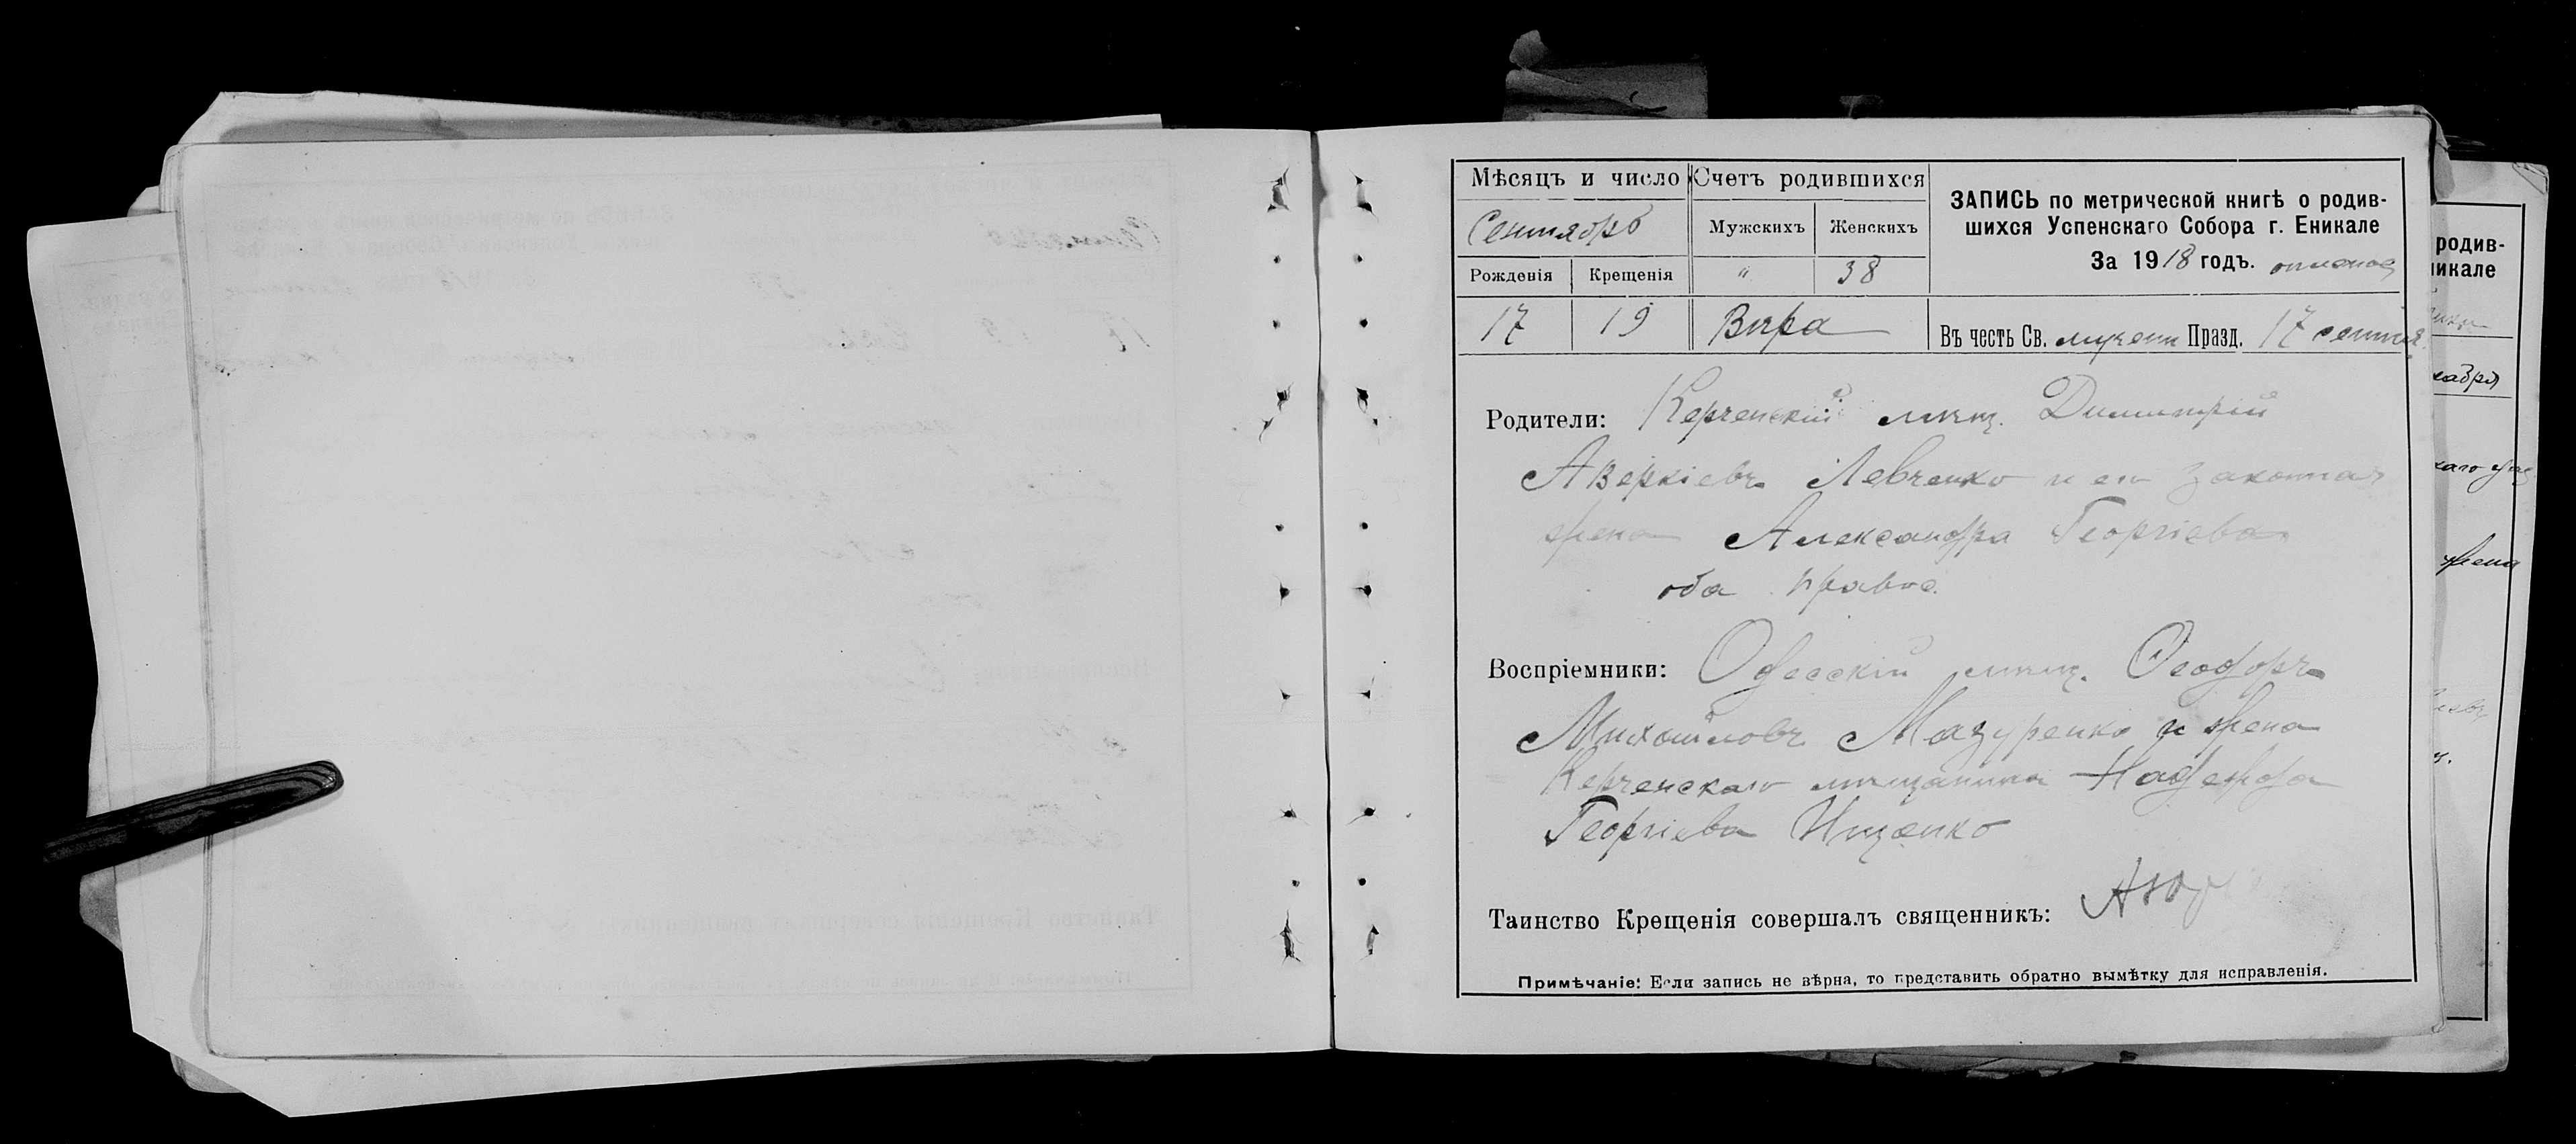 Мѣсяцъ и число
Счетъ родившихся
Сентябрь
Мужскихъ
Женскихъ
Рожденія
Крещенія
"
38
17
19
Вѣра
ЗАПИСЬ по метрической книгѣ о родив-
шихся Успенскаго Собора г. Еникале
За 1918 годъ.
Въ честь Св. мучени Празд. 17 сентяб
Родители: Керченскій мѣщ. Димитрій
Аверкіевъ Левченко и его законная
жена Александра Георгіева
оба правос.
Воспріемники: Одесскій мѣщ. Ѳеодоръ
Михаиловъ Мазуренко и жена
Керченскаго мѣщанина Надежда
Георгіева Ищенко
Таинство Крещенія совершалъ священникъ:
Примѣчаніе: Если запись не вѣрна, то представить обратно вымѣтку для исправленія.
родив-
никале
кабря
каго
жена